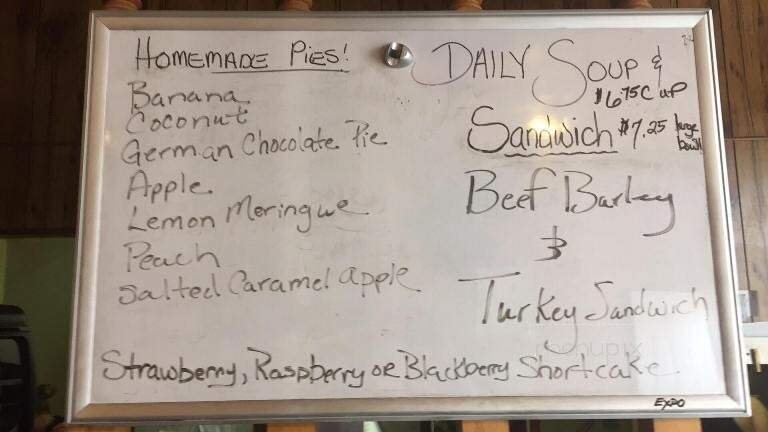 HOMEMADE PIES!
Banana
Coconut
German Chocolate Pie
Apple
Lemon Meringue
Peach
Salted Caramel apple
DAILY SOUP &
$6.75 CUP
Sandwich $7.25 large bowl
Beef Barley
&
Turkey Sandwich
Strawberry, Raspberry or Blackberry Shortcake
EXPO